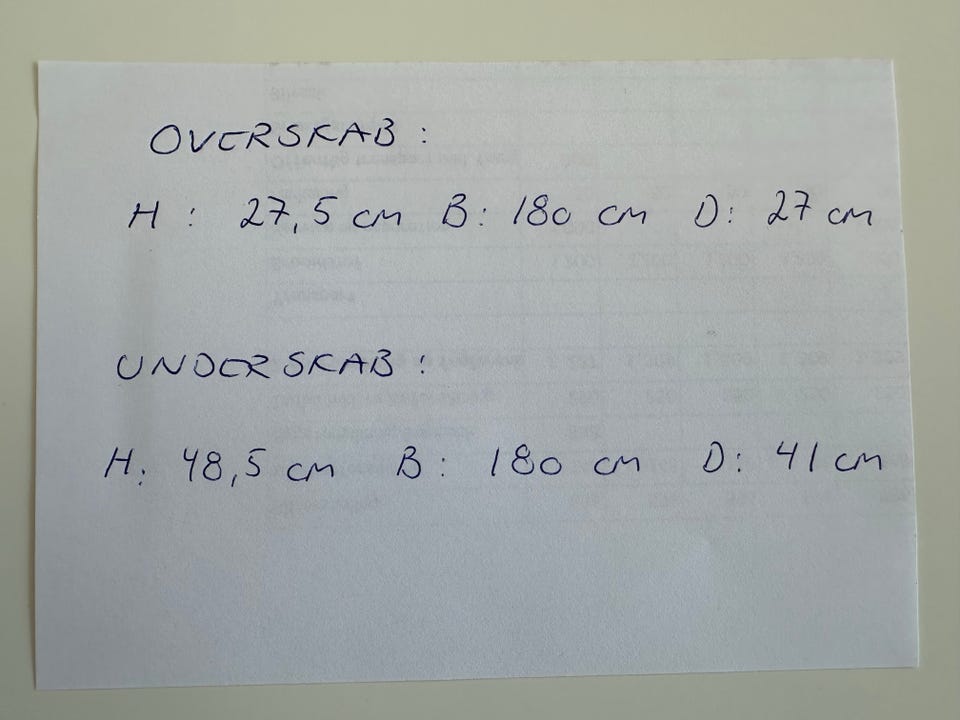 OVERSKAB :
H : 27,5 cm B : 180 cm D : 27 cm
UNDERSKAB :
H : 48,5 cm B : 180 cm D : 41 cm